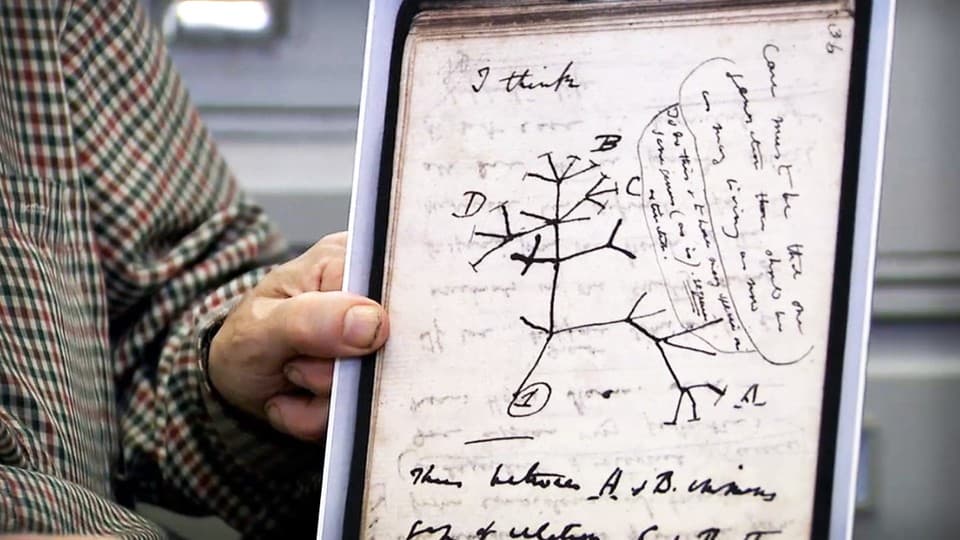 36
I think
B
D
C
A
1
Case must be that one
generation then should be
as many living as now
To do this & to have many species in
same genus (as is). requires
extinction.
Thus between A & B. immens
gap of relation. C & B. The